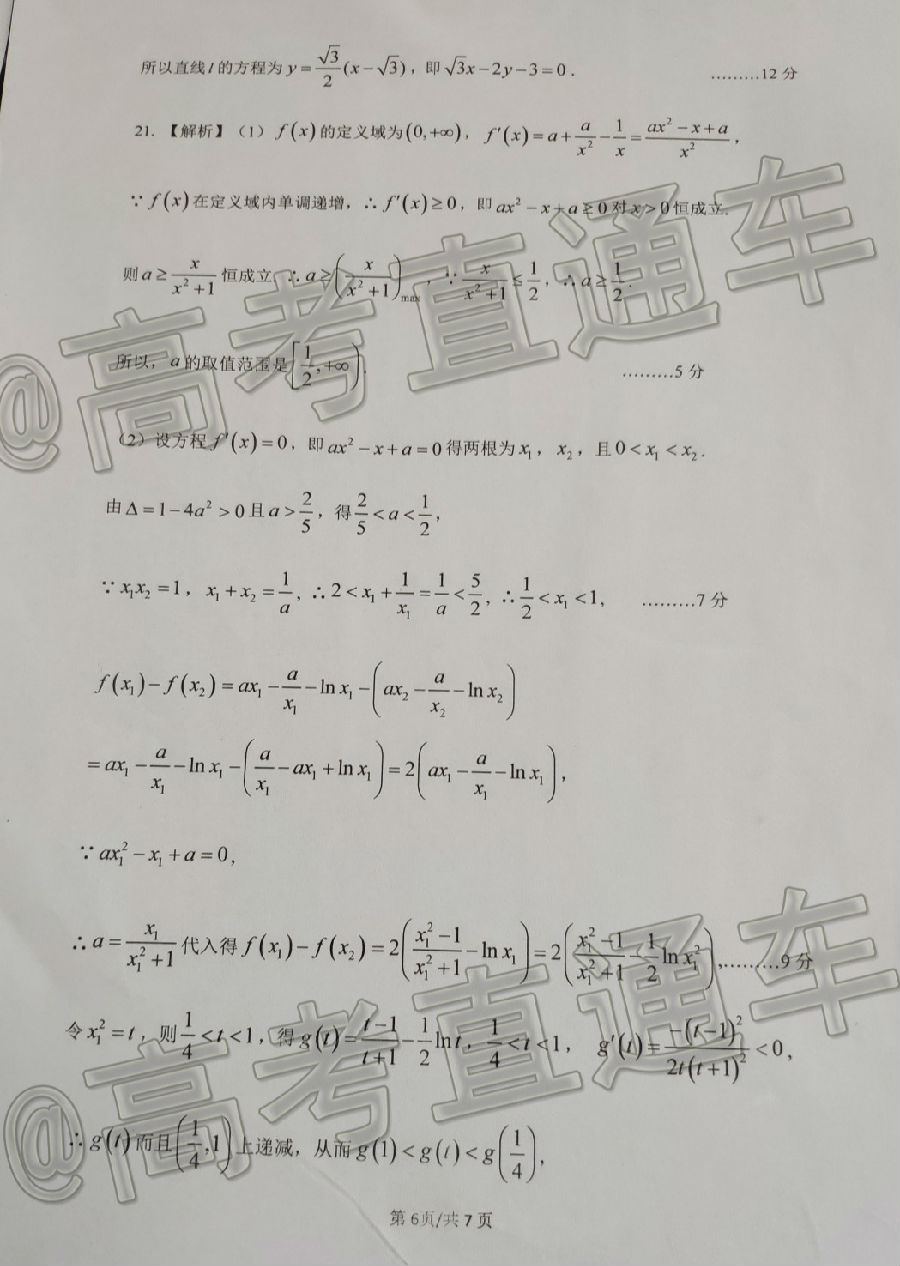 所以直线 l 的方程为 y=\frac{\sqrt{3}}{2}(x-\sqrt{3})，即 \sqrt{3}x-2y-3=0． ………12 分
21. 【解析】（1） f(x) 的定义域为 (0,+∞)， f'(x)=a+\frac{a}{x^2}-\frac{1}{x}=\frac{ax^2-x+a}{x^2}，
∵ f(x) 在定义域内单调递增，∴ f'(x)≥0，即 ax^2-x+a≥0 对 x>0 恒成立．
则 a≥\frac{x}{x^2+1} 恒成立，∴ a≥\left(\frac{x}{x^2+1}\right)_{max}，∵ \frac{x}{x^2+1}≤\frac{1}{2}，∴ a≥\frac{1}{2}．
所以，a 的取值范围是 \left[\frac{1}{2},+∞\right)． ………5 分
（2）设方程 f'(x)=0，即 ax^2-x+a=0 得两根为 x_1，x_2，且 0<x_1<x_2．
由 Δ=1-4a^2>0 且 a>\frac{2}{5}，得 \frac{2}{5}<a<\frac{1}{2}，
∵ x_1x_2=1，x_1+x_2=\frac{1}{a}，∴ 2<x_1+\frac{1}{x_1}=\frac{1}{a}<\frac{5}{2}，∴ \frac{1}{2}<x_1<1， ………7 分
f(x_1)-f(x_2)=ax_1-\frac{a}{x_1}-\ln x_1-\left(ax_2-\frac{a}{x_2}-\ln x_2\right)
=ax_1-\frac{a}{x_1}-\ln x_1-\left(\frac{a}{x_1}-ax_1+\ln x_1\right)=2\left(ax_1-\frac{a}{x_1}-\ln x_1\right)，
∵ ax_1^2-x_1+a=0，
∴ a=\frac{x_1}{x_1^2+1} 代入得 f(x_1)-f(x_2)=2\left(\frac{x_1^2-1}{x_1^2+1}-\ln x_1\right)=2\left(\frac{x_1^2-1}{x_1^2+1}-\frac{1}{2}\ln x_1^2\right)，………9 分
令 x_1^2=t，则 \frac{1}{4}<t<1，得 g(t)=\frac{t-1}{t+1}-\frac{1}{2}\ln t，\frac{1}{4}<t<1， g'(t)=\frac{-(t-1)^2}{2t(t+1)^2}<0，
∴ g(t) 而且 \left(\frac{1}{4},1\right) 上递减，从而 g(1)<g(t)<g\left(\frac{1}{4}\right)，
第 6页/共 7 页
@高考直通车
@高考直通车